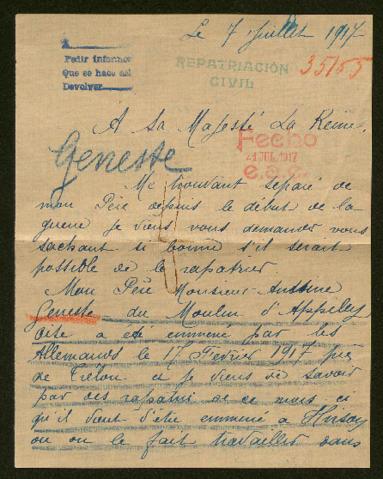 Le 7 Juillet 1917
A
Pedir informes
Que se hace así
Devolver
REPATRIACIÓN
CIVIL
35155
A Sa Majesté La Reine,
Fecho
21 JUL. 1917
Geneste
Me trouvant séparé de
mon Père depuis le début de la
guerre je viens vous demander vous
sachant si bonne s'il serait
possible de le rapatrier
Mon Père Monsieur
Geneste du Moulin d'
a été emmené par les
Allemands le 17 Février 1917 près
de Trélon et je viens de savoir
par des rapatriés de ce mois ce
qu'il vient d'être emmené a Hirson
ou on le fait travailler dans